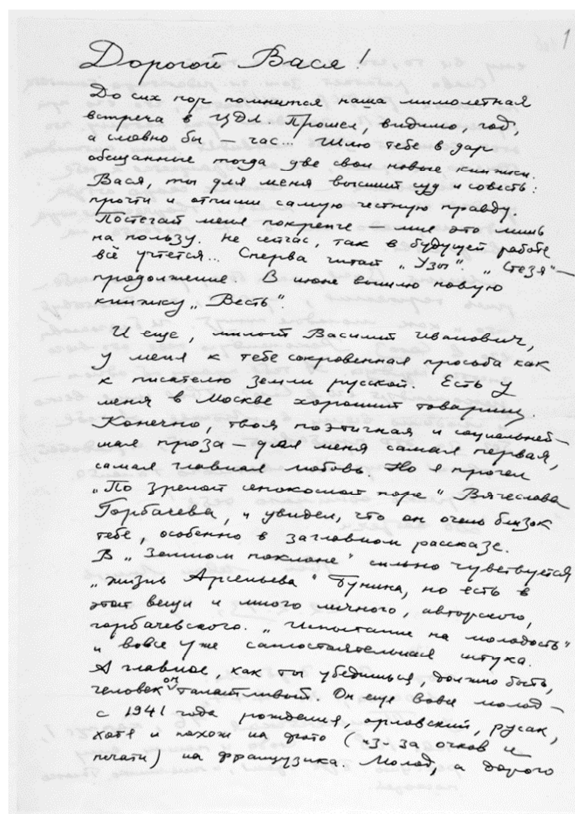 1
Дорогой Вася!
До сих пор помнится наша мимолетная
встреча в ЦДЛ. Прошел, видимо, год,
а словно бы – час... Шлю тебе в дар
обещанные тогда две свои новые книжки.
Вася, ты для меня высший суд и совесть:
прочти и отпиши самую честную правду.
Постегай меня покрепче – мне это лишь
на пользу. Не сейчас, так в будущей работе
всё учтется... Сперва читай „Узы“ „Стезя“ –
продолжение. В июне вышлю новую
книжку „Весть“.
И еще, милый Василий Иванович,
у меня к тебе сокровенная просьба как
к писателю земли русской. Есть у
меня в Москве хороший товарищ.
Конечно, твоя поэтичная и социальней-
шая проза – для меня самая первая,
самая главная любовь. Но я прочел
„По зрелой сенокосной поре“ Вячеслава
Горбачева, и увидел, что он очень близок
тебе, особенно в заглавном рассказе.
В „Земном поклоне“ сильно чувствуется
„Жизнь Арсеньева“ Бунина, но есть в
этой вещи и много личного, авторского,
горбачевского. „Испытание на молодость“
и вовсе уже самостоятельная штука.
А главное, как ты убедишься, должно быть,
человек он талантливый. Он еще вовсе молод –
с 1941 года рождения, орловский, русак,
хотя и похож на фото (из-за очков и
печати) на французика. Молод, а дорого